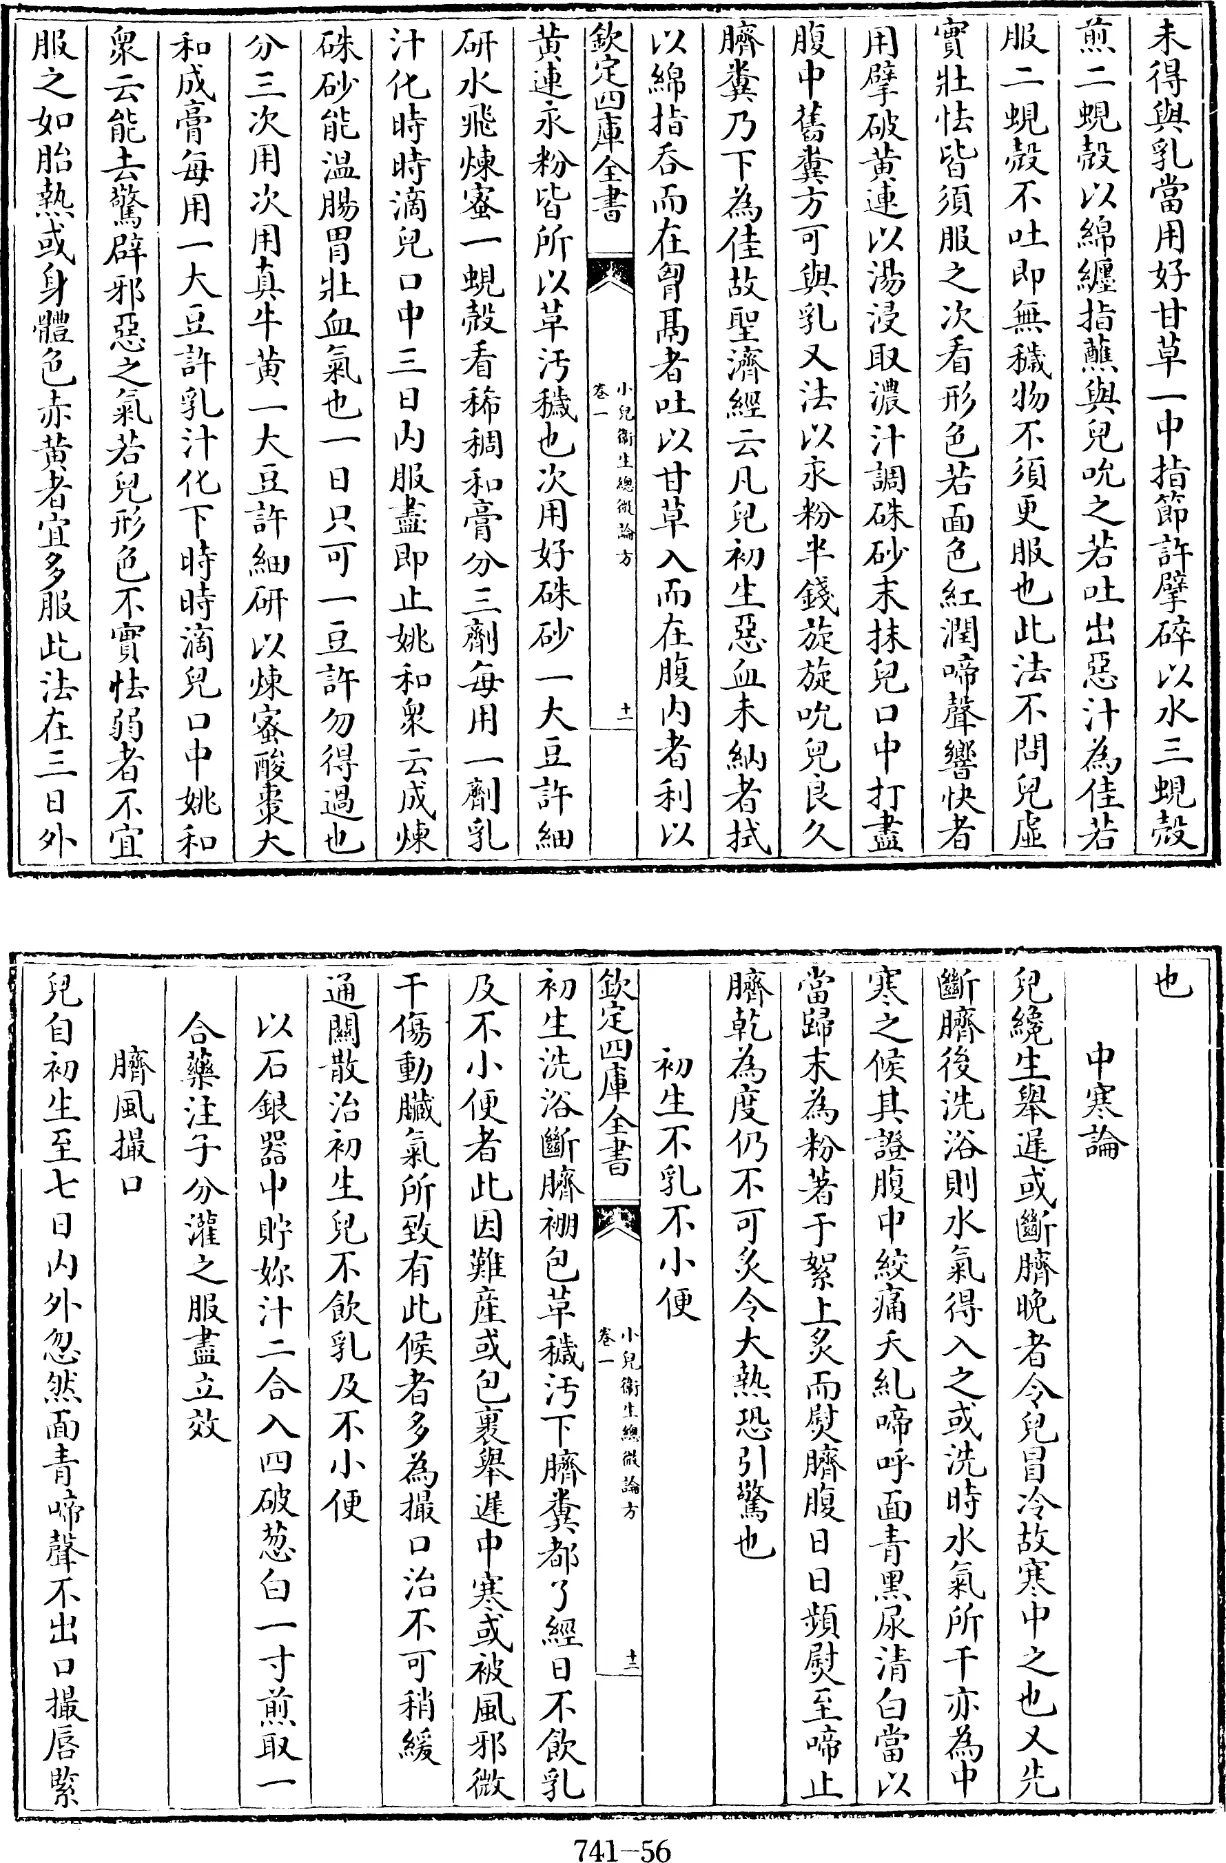 未得與乳當用好甘草一中指節許擘碎以水三蜆殼
煎二蜆殼以綿纏指蘸與兒吮之若吐出惡汁為佳若
服二蜆殼不吐即無穢物不須更服也此法不問兒虛
實壯怯皆須服之次看形色若面色紅潤啼聲響快者
用擘破黃連以湯浸取濃汁調硃砂末抹兒口中打盡
腹中舊糞方可與乳又法以汞粉半錢旋旋吮兒良久
臍糞乃下為佳故聖濟經云凡兒初生惡血未納者拭
以綿指吞而在胷鬲者吐以甘草入而在腹内者利以
欽定四庫全書
小兒衛生總微論方
卷一
十一
黃連汞粉皆所以草汚穢也次用好硃砂一大豆許細
研水飛煉蜜一蜆殼看稀稠和膏分三劑每用一劑乳
汁化時時滴兒口中三日内服盡即止姚和衆云成煉
硃砂能温腸胃壯血氣也一日只可一豆許勿得過也
分三次用次用真牛黃一大豆許細研以煉蜜酸棗大
和成膏每用一大豆許乳汁化下時時滴兒口中姚和
衆云能去驚辟邪惡之氣若兒形色不實怯弱者不宜
服之如胎熱或身體色赤黃者宜多服此法在三日外
也
中寒論
兒纔生舉遲或斷臍晚者令兒冒冷故寒中之也又先
斷臍後洗浴則水氣得入之或洗時水氣所干亦為中
寒之候其證腹中絞痛夭乣啼呼面青黑尿清白當以
當歸末為粉著于絮上炙而熨臍腹日日頻熨至啼止
臍乾為度仍不可炙令大熱恐引驚也
初生不乳不小便
欽定四庫全書
小兒衛生總微論方
卷一
十二
初生洗浴斷臍棚包草穢汚下臍糞都了經日不飲乳
及不小便者此因難産或包裹舉遲中寒或被風邪微
干傷動臟氣所致有此候者多為撮口治不可稍緩
通關散治初生兒不飲乳及不小便
以石銀器中貯妳汁二合入四破葱白一寸煎取一
合藥注子分灌之服盡立效
臍風撮口
兒自初生至七日内外忽然面青啼聲不出口撮唇緊
741-56